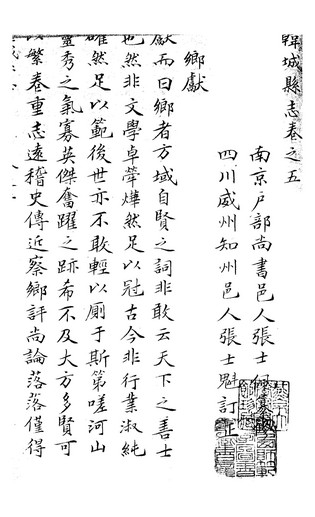 韓城縣志卷之五
南京戶部尚書邑人張士
四川威州知州邑人張士魁訂正
鄉獻
獻而曰鄉者方域自賢之詞非敢云天下之善士
也然非文學卓犖燁然足以冠古今非行業淑純
確然足以範後世亦不敢輕以廁于斯第嗟河山
靈秀之氣寡英傑奮躍之跡希不及大方多賢可
以繁卷重志遠稽史傳近察鄉評尚論落落僅得